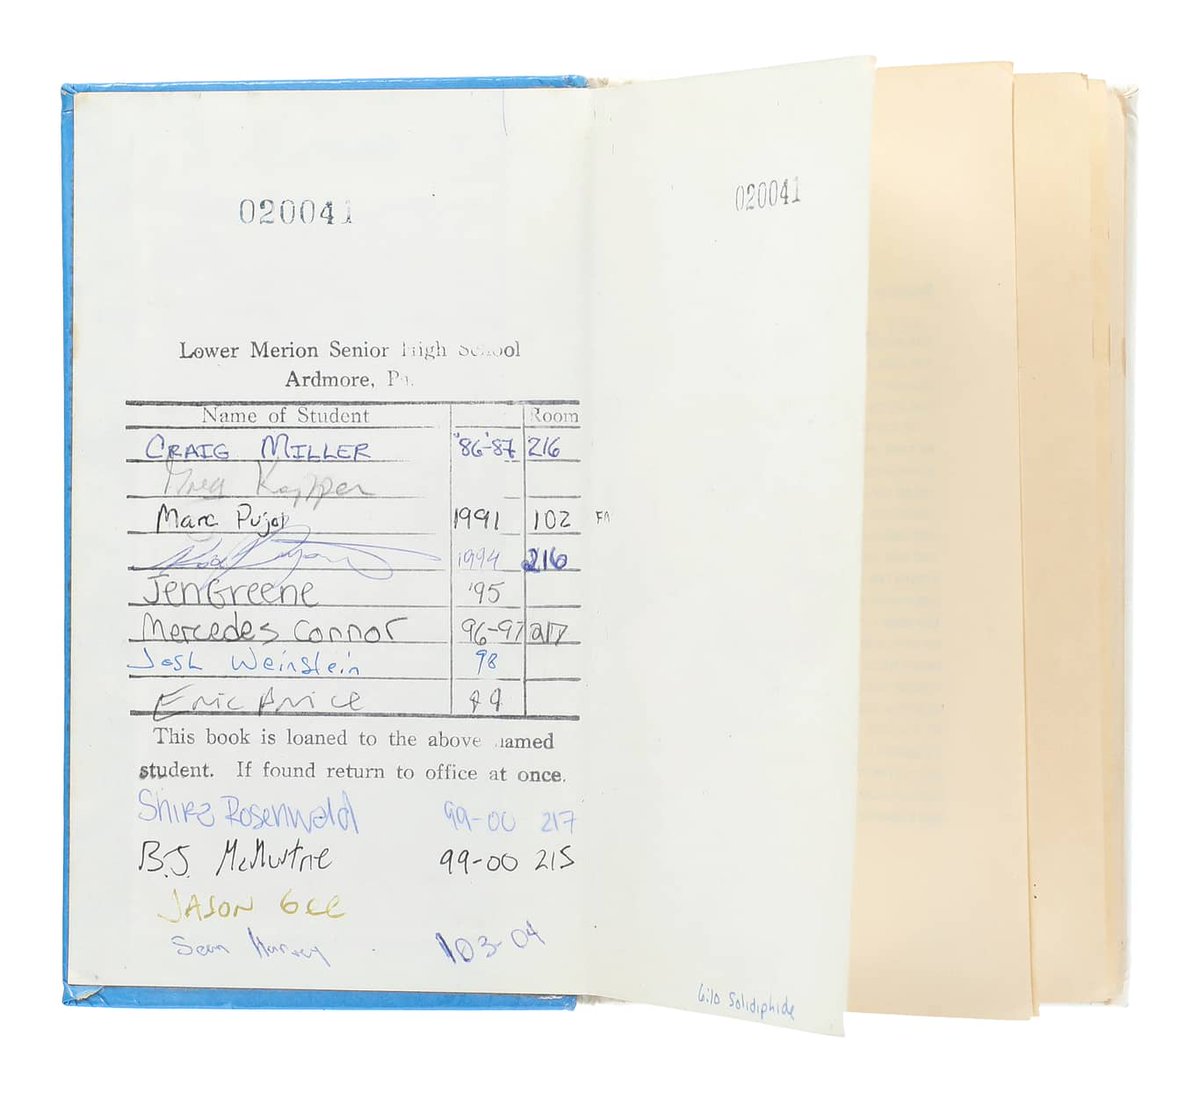 020041
Lower Merion Senior High School
Ardmore, Pa.
Name of Student Room
CRAIG MILLER '86-'87 216
Greg
Marc Pujol 1991 102
1994 216
Jen Greene '95
Mercedes Connor 96-97 217
Josh Weinstein 98
Eric Price 99
This book is loaned to the above named
student. If found return to office at once.
Shira Rosenwald 99-00 217
B.J. McMurtrie 99-00 215
JASON GEE
Sean Harvey 03-04
020041